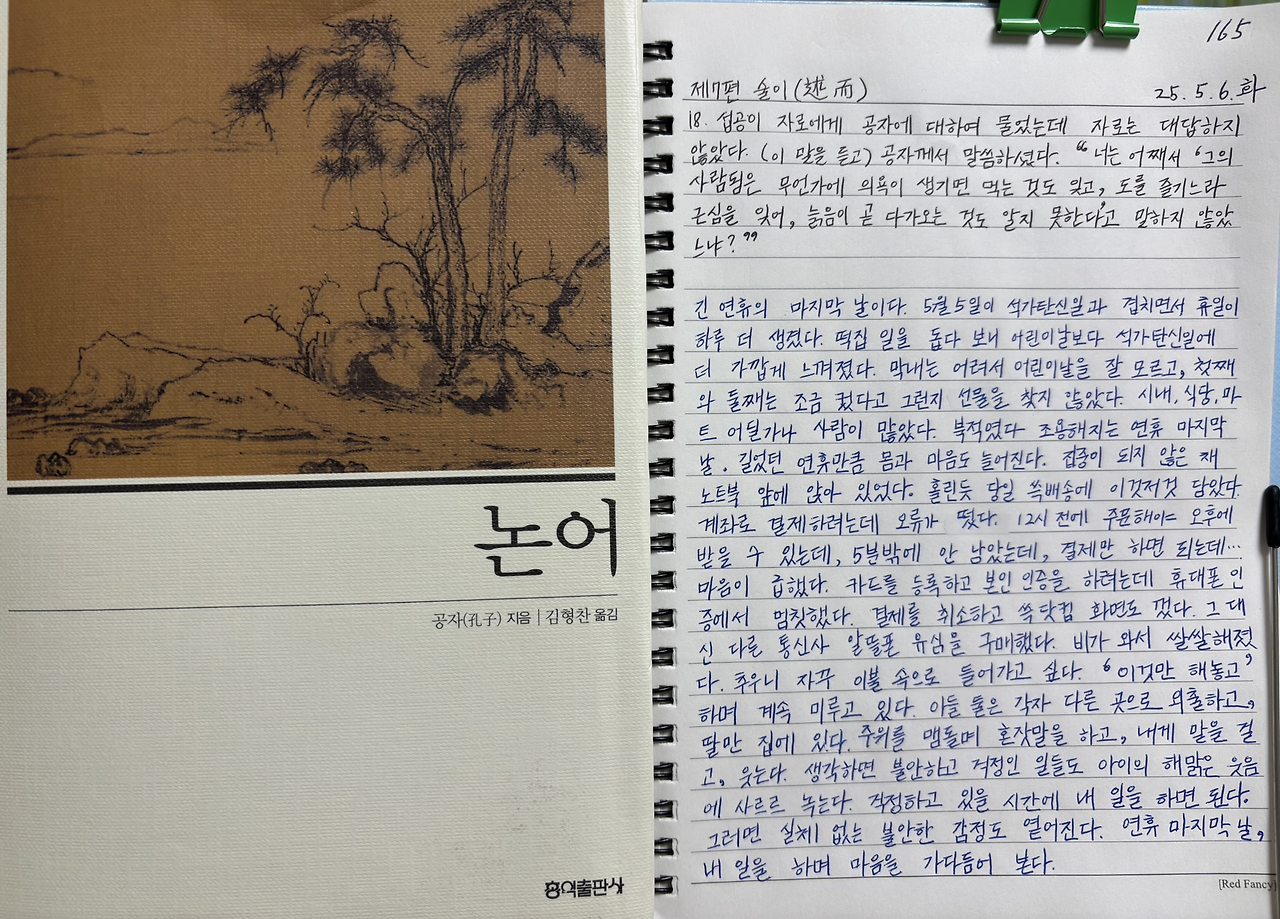 논어
공자(孔子) 지음 | 김형찬 옮김
홍익출판사
165
제7편 술이(述而) 25. 5. 6. 화
18. 섭공이 자로에게 공자에 대하여 물었는데 자로는 대답하지
않았다. (이 말을 듣고) 공자께서 말씀하셨다. "너는 어째서 '그의
사람됨은 무언가에 의욕이 생기면 먹는 것도 잊고, 도를 즐기느라
근심을 잊어, 늙음이 곧 다가오는 것도 알지 못한다'고 말하지 않았
느냐?"
긴 연휴의 마지막 날이다. 5월 5일이 석가탄신일과 겹치면서 휴일이
하루 더 생겼다. 떡집 일을 돕다 보내 어린이날보다 석가탄신일에
더 가깝게 느껴졌다. 막내는 어려서 어린이날을 잘 모르고, 첫째
와 둘째는 조금 컸다고 그런지 선물을 찾지 않았다. 시내, 식당, 마
트 어딜가나 사람이 많았다. 북적였다 조용해지는 연휴 마지막
날. 길었던 연휴만큼 몸과 마음도 늘어진다. 집중이 되지 않은 채
노트북 앞에 앉아 있었다. 홀린듯 당일 쓱배송에 이것저것 담았다.
계좌로 결제하려는데 오류가 떴다. 12시 전에 주문해야 오후에
받을 수 있는데, 5분밖에 안 남았는데, 결제만 하면 되는데…
마음이 급했다. 카드를 등록하고 본인 인증을 하려는데 휴대폰 인
증에서 멈칫했다. 결제를 취소하고 쓱닷컴 화면도 껐다. 그 대
신 다른 통신사 알뜰폰 유심을 구매했다. 비가 와서 쌀쌀해졌
다. 추우니 자꾸 이불 속으로 들어가고 싶다. '이것만 해놓고'
하며 계속 미루고 있다. 아들 둘은 각자 다른 곳으로 외출하고,
딸만 집에 있다. 주위를 맴돌며 혼잣말을 하고, 내게 말을 걸
고, 웃는다. 생각하면 불안하고 걱정인 일들도 아이의 해맑은 웃음
에 사르르 녹는다. 걱정하고 있을 시간에 내 일을 하면 된다.
그러면 실체 없는 불안한 감정도 옅어진다. 연휴 마지막 날,
내 일을 하며 마음을 가다듬어 본다.
[Red Fancy]